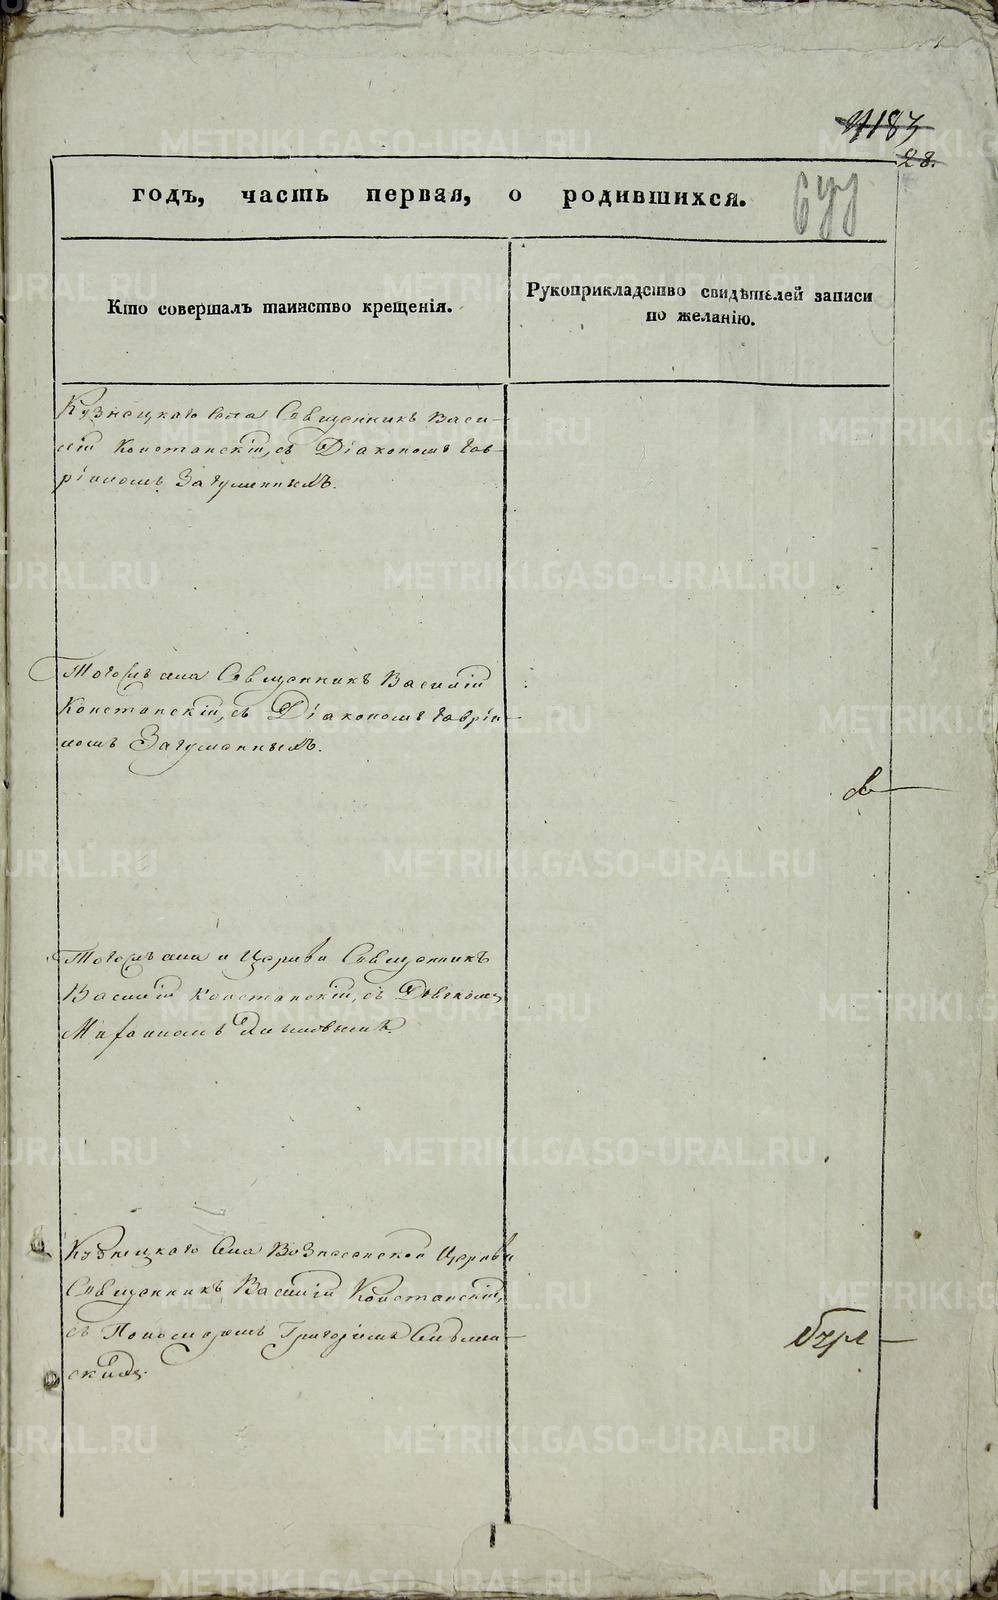 183
28.
годъ, часть первая, о родившихся.
Кто совершалъ таинство крещенія.
Рукоприкладство свидѣтелей записи
по желанію.
Кузнецкаго села Священникъ Васи-
лій Констанскій, съ Діакономъ Гав-
ріиломъ Загуменнымъ.
Тогожъ села Священникъ Василій
Констанскій, съ Діакономъ Гаврiи-
ломъ Загуменнымъ.
Тогожъ села и Церкви Священникъ
Василій Констанскій, съ Дьячкомъ
Кузнецкаго Села Вознесенской Церкви
Священникъ Василій Констанскій,
съ Пономаремъ Григоріемъ
скимъ.
METRIKI.GASO-URAL.RU